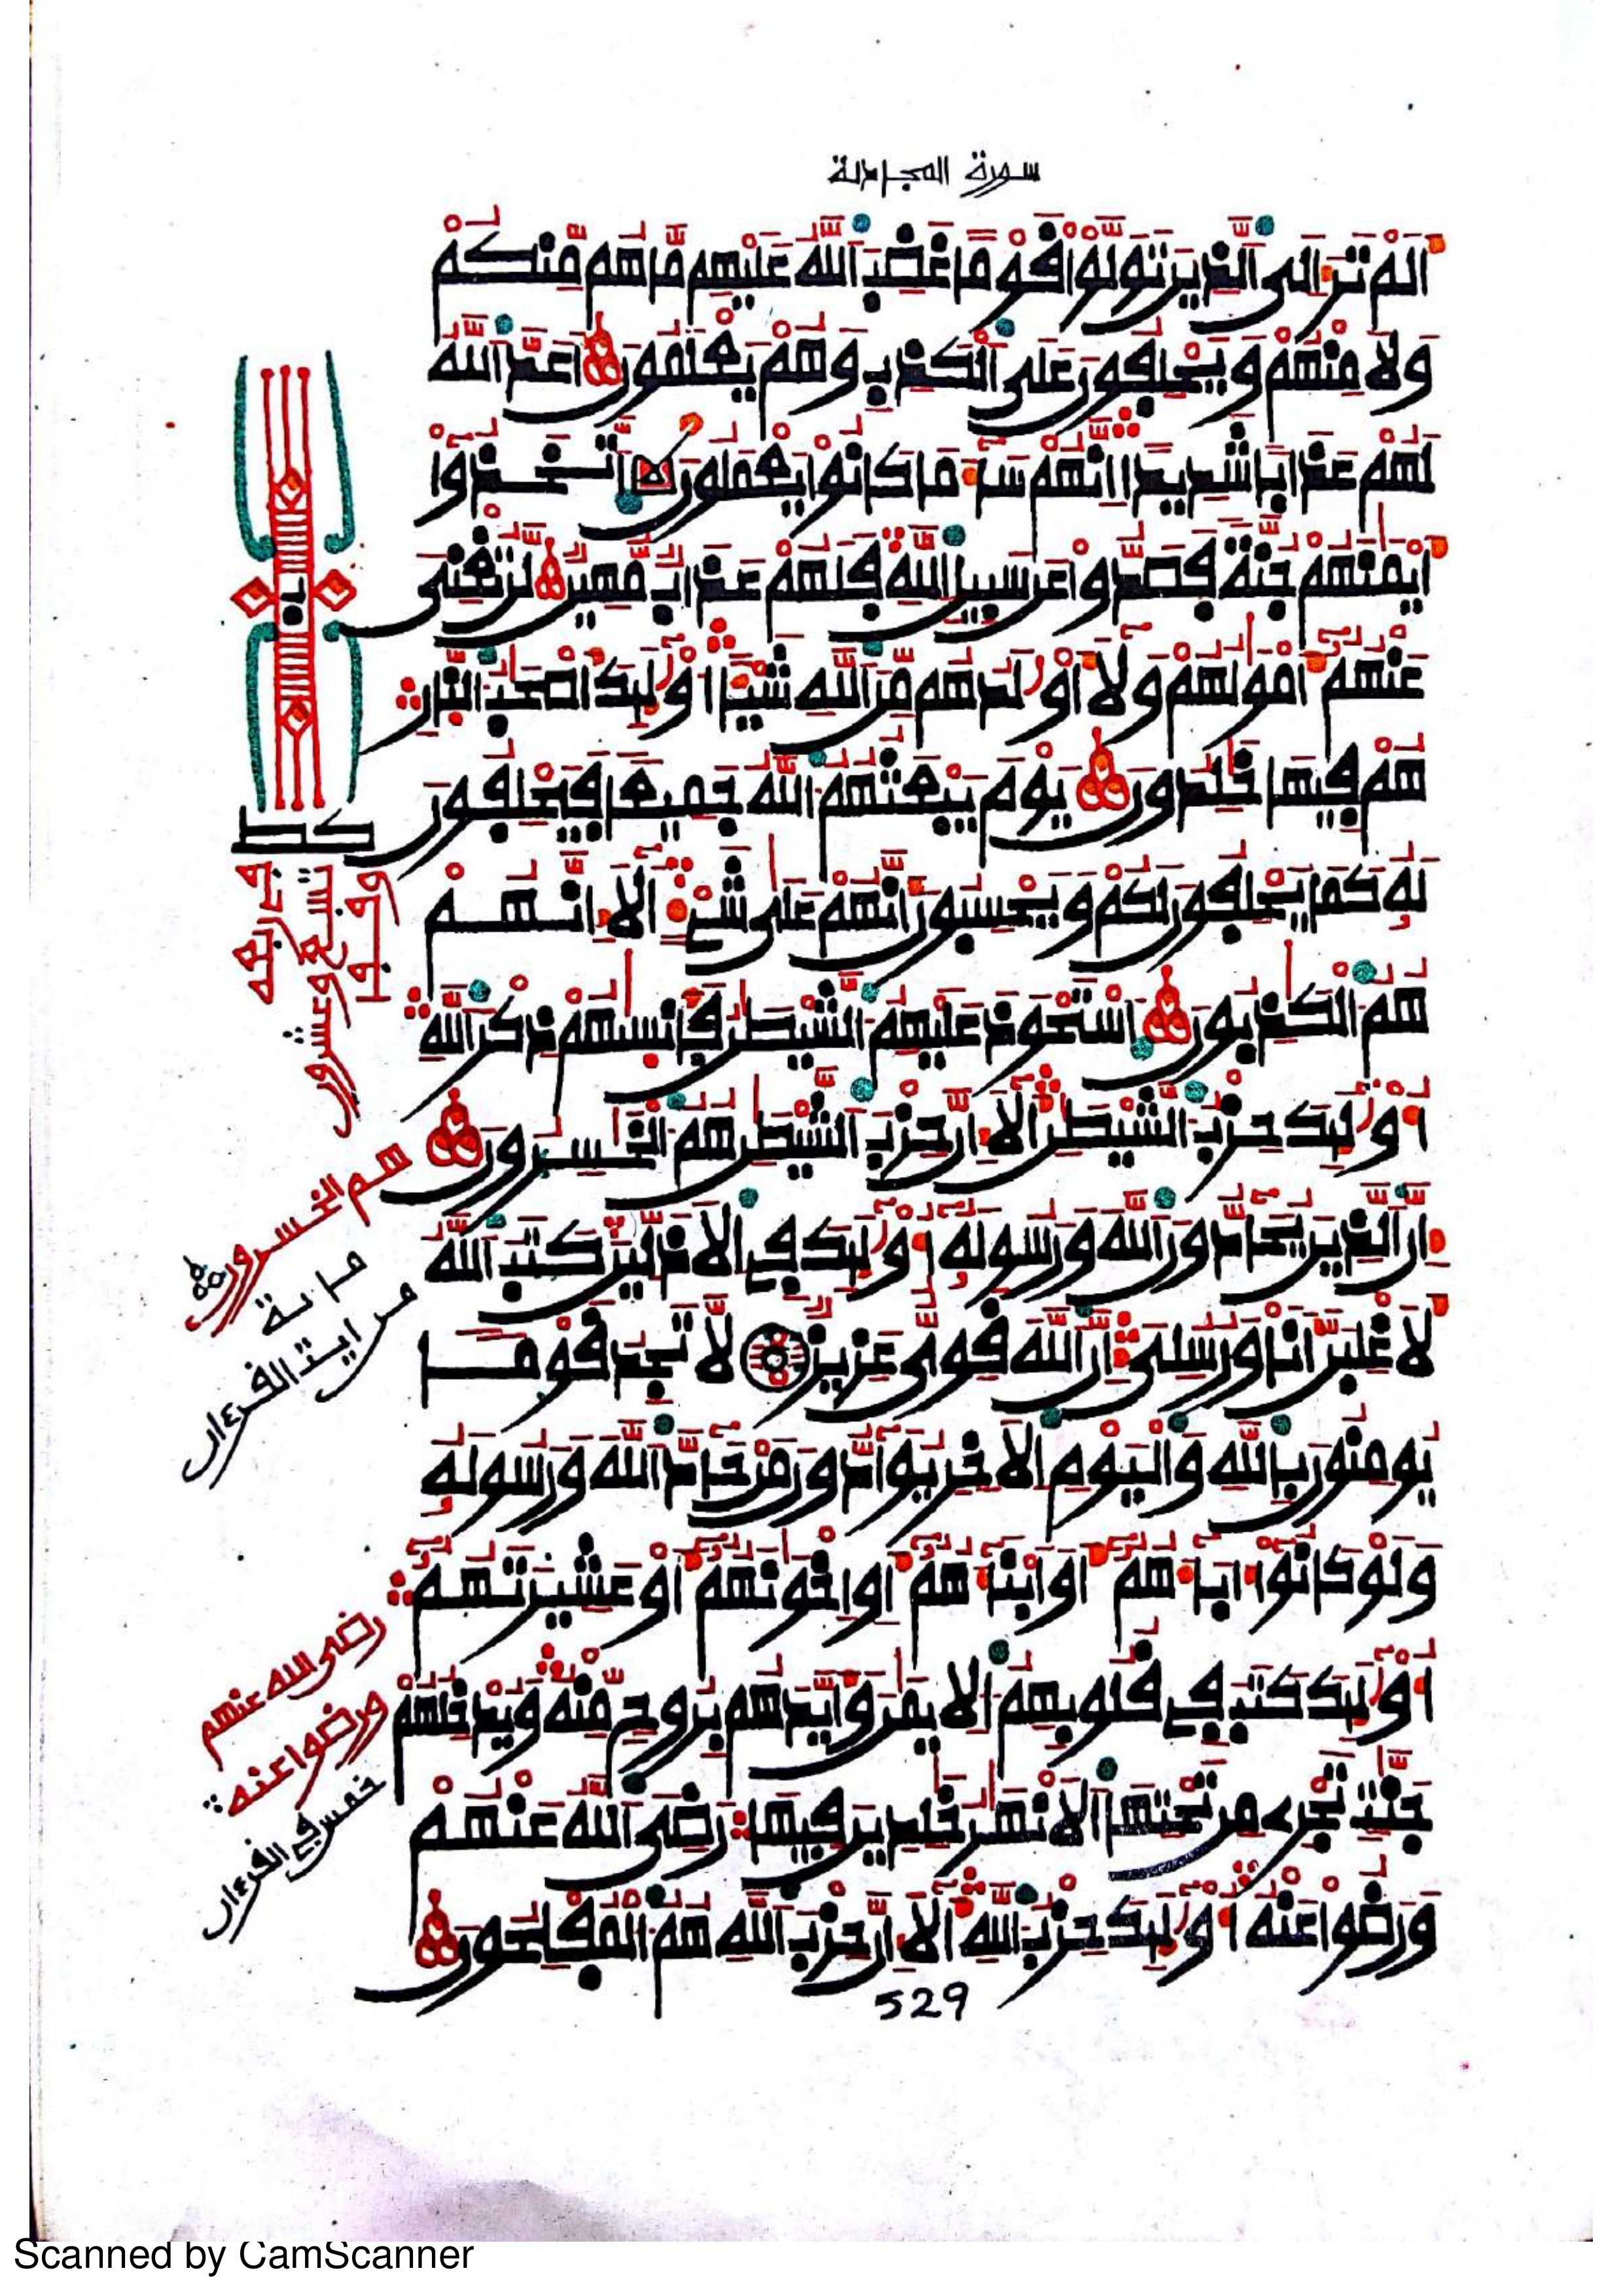 سورة المجادلة
اَلَمْ تَرَ إِلَى اَلذِينَ تَوَلَّوْاْ قَوْماً غَضِبَ اَللَّهُ عَلَيْهِم مَّا هُم مِّنكُمْ
وَلَا مِنْهُمْ وَيَحْلِفُونَ عَلَى اَلْكَذِبِ وَهُمْ يَعْلَمُونَ أَعَدَّ اَللَّهُ
لَهُمْ عَذَاباً شَدِيداً اِنَّهُمْ سَآءَ مَا كَانُواْ يَعْمَلُونَ اَتَّخَذُوٓاْ
أَيْمَٰنَهُمْ جُنَّةً فَصَدُّواْ عَن سَبِيلِ اِللَّهِ فَلَهُمْ عَذَابٌ مُّهِينٌ لَّن تُغْنِىَ
عَنْهُمُۥٓ أَمْوَٰلُهُمْ وَلَآ أَوْلَٰدُهُم مِّنَ اَللَّهِ شَيْـٔاً اُوْلَٰٓئِكَ أَصْحَٰبُ اُلنّ۪ارِ
هُمْ فِيهَا خَٰلِدُونَ يَوْمَ يَبْعَثُهُمُ اُللَّهُ جَمِيعاً فَيَحْلِفُونَ
لَهُۥ كَمَا يَحْلِفُونَ لَكُمْ وَيَحْسِبُونَ أَنَّهُمْ عَلَىٰ شَےْءٍ اَلَآ إِنَّهُمْ
هُمُ اُلْكَٰذِبُونَ اَسْتَحْوَذَ عَلَيْهِمُ اُلشَّيْطَٰنُ فَأَنس۪ىٰهُمْ ذِكْرَ اَللَّهِ
أُوْلَٰٓئِكَ حِزْبُ اُلشَّيْطَٰنِ أَلَآ إِنَّ حِزْبَ اَلشَّيْطَٰنِ هُمُ اُلْخَٰسِرُونَ
إِنَّ اَلذِينَ يُحَآدُّونَ اَللَّهَ وَرَسُولَهُۥٓ أُوْلَٰٓئِكَ فِى اِلْأَذَلِّينَ كَتَبَ اَللَّهُ
لَأَغْلِبَنَّ أَنَا وَرُسُلِىَ إِنَّ اَللَّهَ قَوِىٌّ عَزِيزٌ لَّا تَجِدُ قَوْماً
يُومِنُونَ بِاللَّهِ وَالْيَوْمِ اِلَاخِرِ يُوَآدُّونَ مَنْ حَآدَّ اَللَّهَ وَرَسُولَهُۥ
وَلَوْ كَانُوٓاْ ءَابَآءَهُمُۥٓ أَوَ اَبْنَآءَهُمُۥٓ أَوِ اِخْوَٰنَهُمُۥٓ أَوْ عَشِيرَتَهُمُۥٓ
أُوْلَٰٓئِكَ كَتَبَ فِى قُلُوبِهِمُ اُلِايمَٰنَ وَأَيَّدَهُم بِرُوحٍ مِّنْهُ وَيُدْخِلُهُمْ
جَنَّٰتٍ تَجْرِى مِن تَحْتِهَا اَلَانْهَٰرُ خَٰلِدِينَ فِيهَا رَضِىَ اَللَّهُ عَنْهُمْ
وَرَضُواْ عَنْهُ أُوْلَٰٓئِكَ حِزْبُ اُللَّهِ أَلَآ إِنَّ حِزْبَ اَللَّهِ هُمُ اُلْمُفْلِحُونَ
529
كط
تسع وعشرون
هم الخسرون
ماية
من ايت القرءان
رضى الله عنهم
ورضوا عنه
خمس في القرءان
Scanned by CamScanner